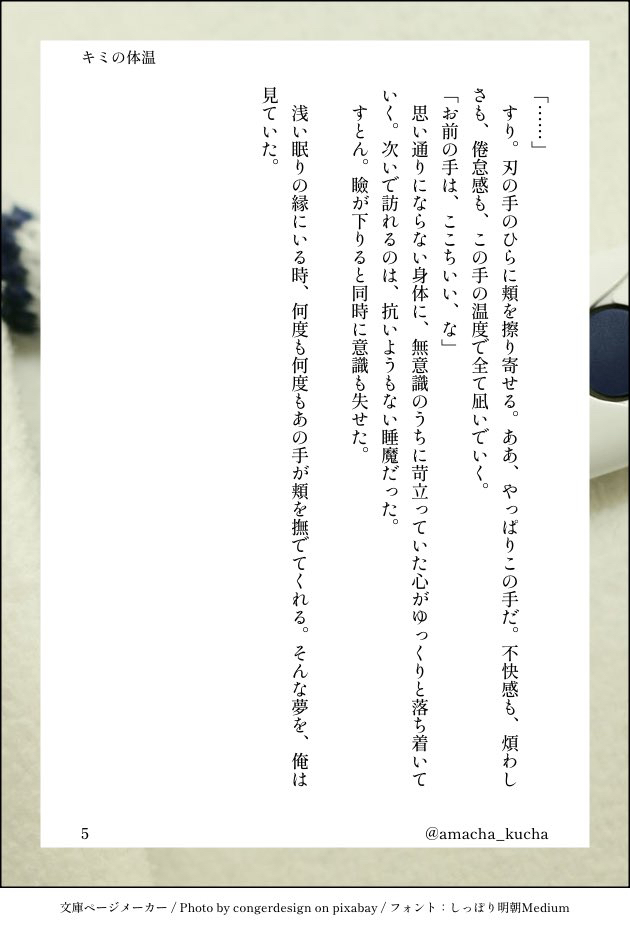 キミの体温
「……」
　すり。刃の手のひらに頬を擦り寄せる。ああ、やっぱりこの手だ。不快感も、煩わし
さも、倦怠感も、この手の温度で全て凪いでいく。
「お前の手は、ここちいい、な」
　思い通りにならない身体に、無意識のうちに苛立っていた心がゆっくりと落ち着いて
いく。次いで訪れるのは、抗いようもない睡魔だった。
　すとん。瞼が下りると同時に意識も失せた。
　浅い眠りの縁にいる時、何度も何度もあの手が頬を撫でてくれる。そんな夢を、俺は
見ていた。
5
@amacha_kucha
文庫ページメーカー / Photo by congerdesign on pixabay / フォント：しっぽり明朝Medium